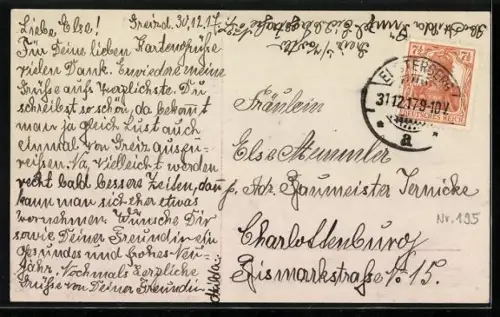 Greiz d. 30.12.17.
Liebe Else!
Für Deine lieben Kartengrüße
vielen Dank. Erwiedere meine
Grüße aufs Herzlichste. Du
schreibst so schön, da bekommt
man ja gleich Lust auch
einmal von Greiz auszu-
reißen. Na, vielleicht werden
recht bald bessere Zeiten, dann
kann man sich eher etwas
vornehmen. Wünsche Dir
sowie Deiner Freundin ein
gesundes und frohes Neu-
jahr. Nochmals herzliche
Grüße von Deiner Freundin
Hilda
7½ 7½
DEUTSCHES REICH
ELSTERBERG
31.12.17.9-10V.
* a *
Fräulein
Else Stemmler
p. Adr. Baumeister Jernicke
Charlottenburg
Bismarkstraße No 15.
Nr. 195